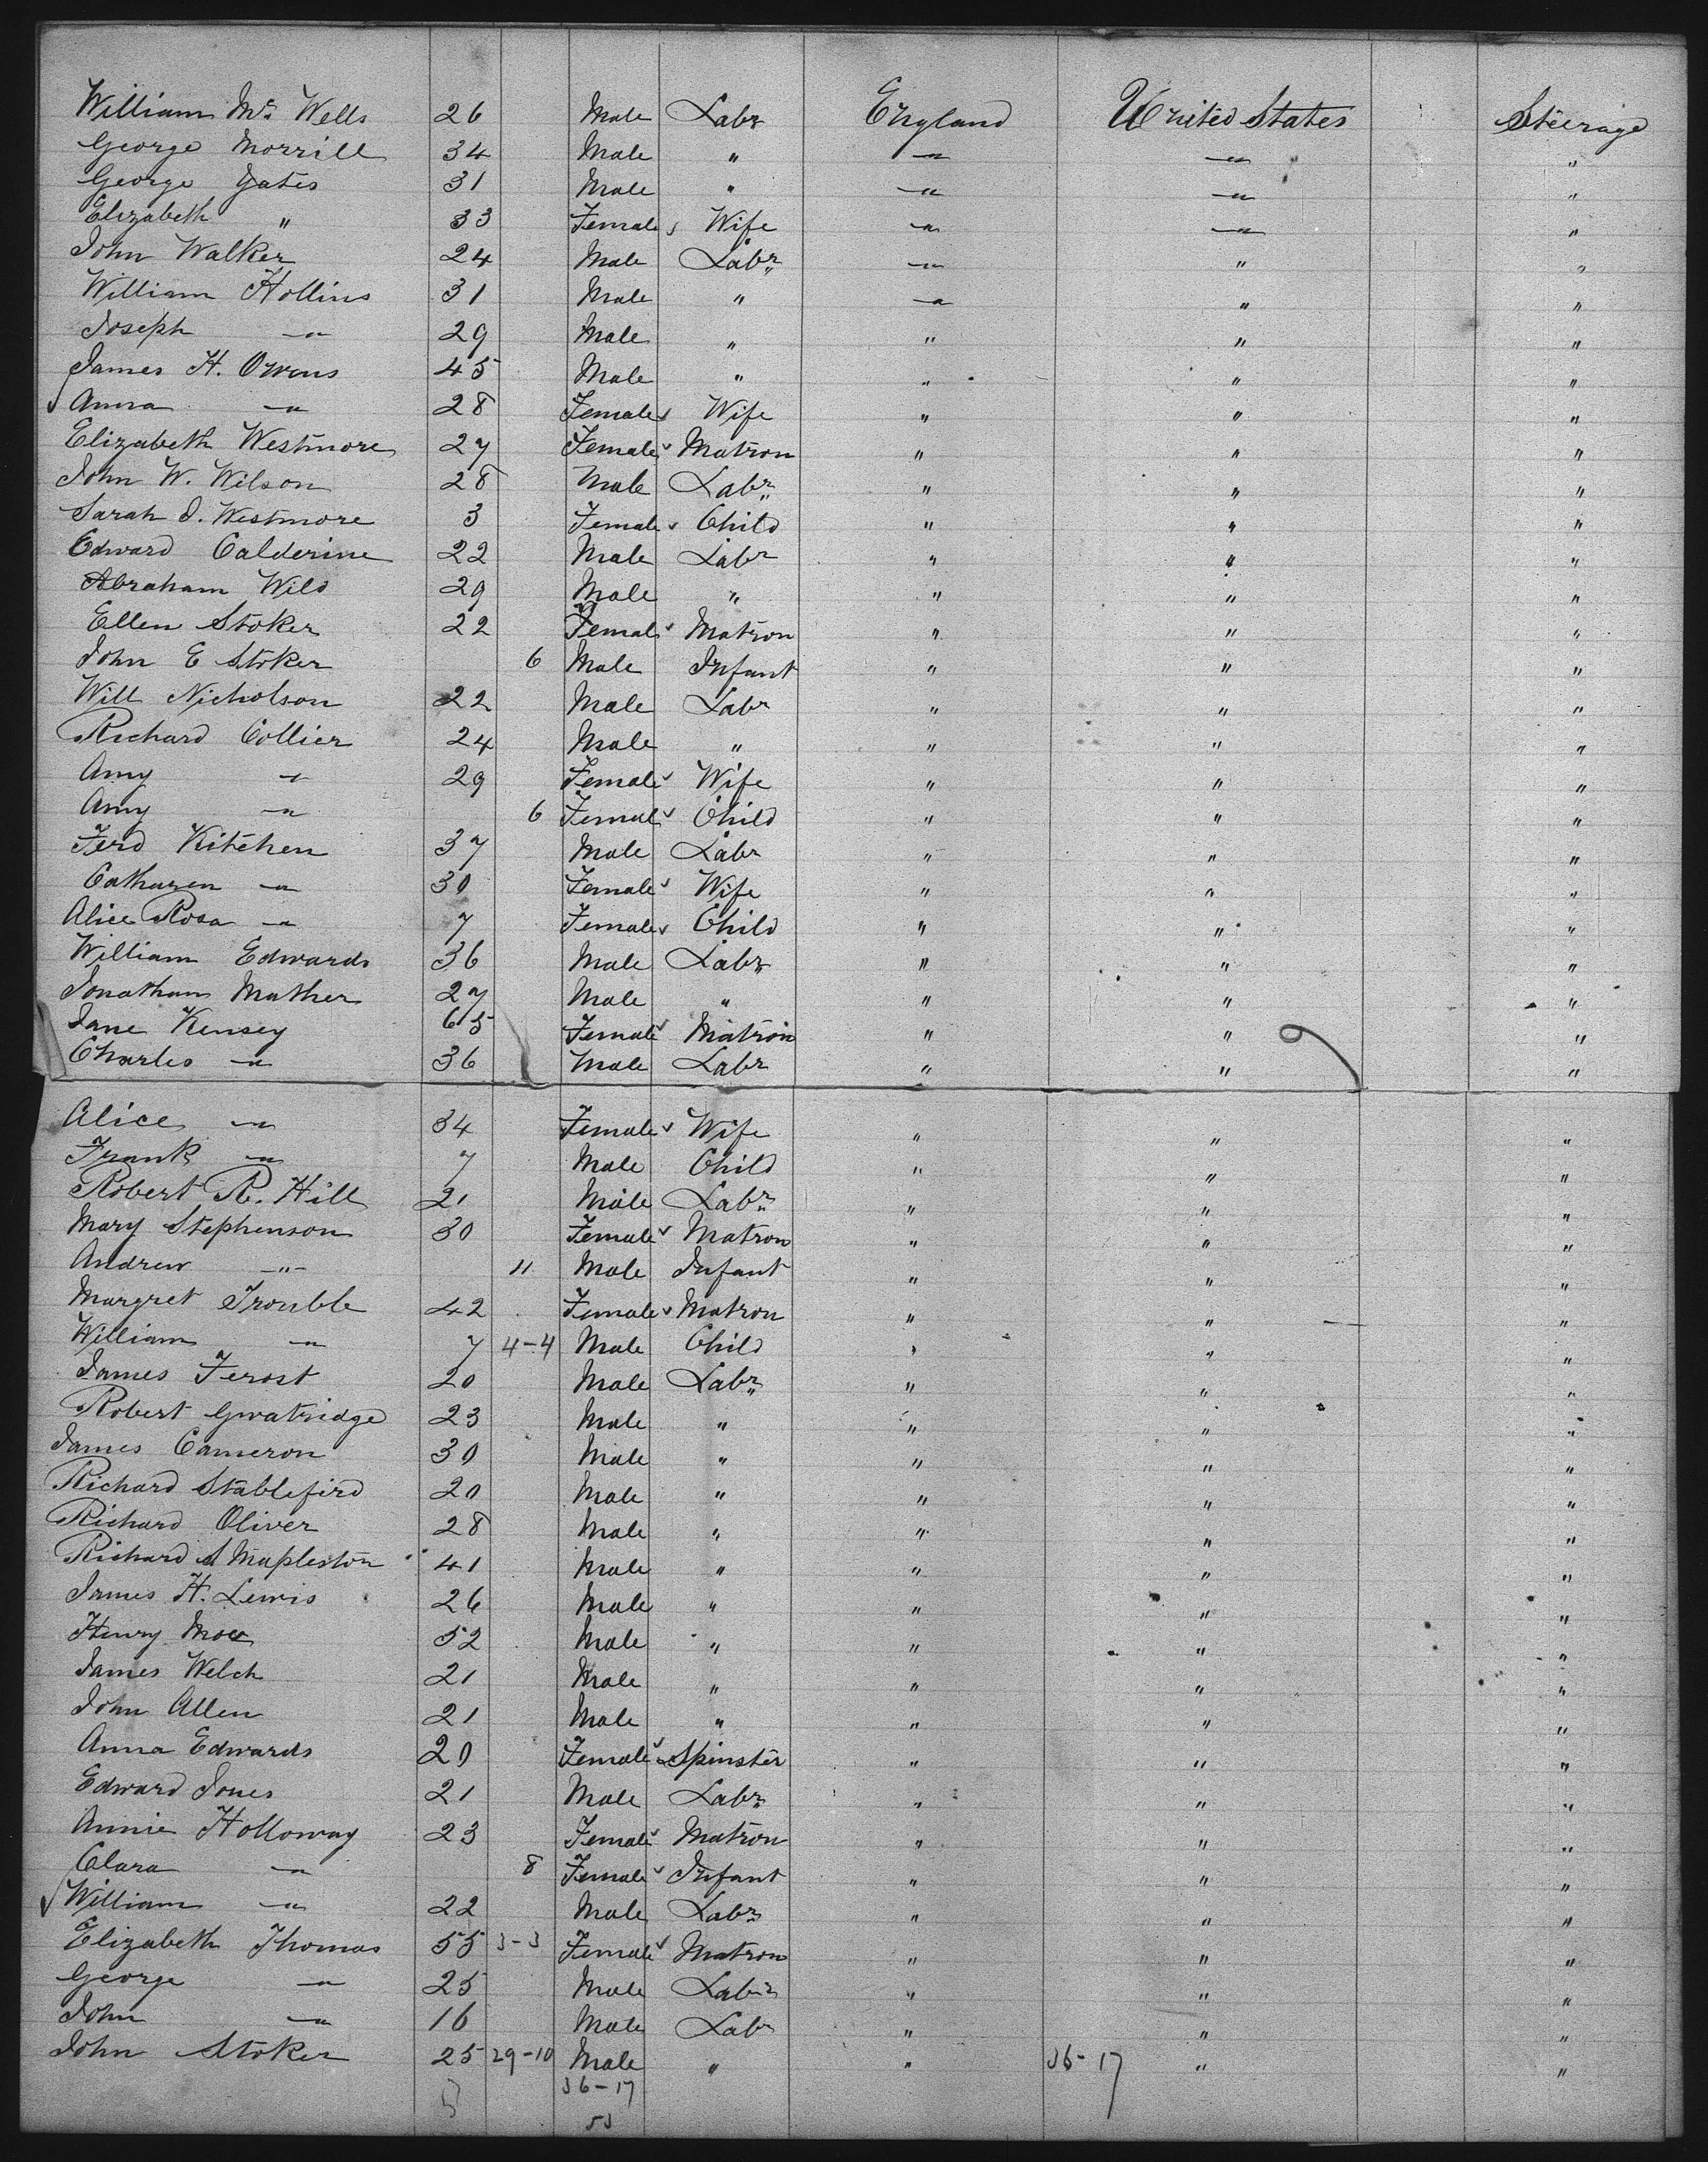 William Mc Wells 26 Male Labr England United States Steerage
George Morrill 34 Male " " " "
George Yates 31 Male " " " "
Elizabeth " 33 Female Wife " " "
John Walker 24 Male Labr " " "
William Hollins 31 Male " " " "
Joseph " 29 Male " " " "
James H. Owens 45 Male " " " "
Anna " 28 Female Wife " " "
Elizabeth Westmore 27 Female Matron " " "
John W. Wilson 28 Male Labr " " "
Sarah J. Westmore 3 Female Child " " "
Edward Calderine 22 Male Labr " " "
Abraham Wild 29 Male " " " "
Ellen Stoker 22 Female Matron " " "
John E Stoker 6 Male Infant " " "
Will Nicholson 22 Male Labr " " "
Richard Collier 24 Male " " " "
Amy " 29 Female Wife " " "
Amy " 6 Female Child " " "
Ferd Kitchen 37 Male Labr " " "
Catharen " 30 Female Wife " " "
Alice Rosa " 7 Female Child " " "
William Edwards 36 Male Labr " " "
Jonathan Mather 27 Male " " " "
Jane Kensey 65 Female Matron " " "
Charles " 36 Male Labr " " "
Alice " 34 Female Wife " " "
Frank " 7 Male Child " " "
Robert R. Hill 21 Male Labr " " "
Mary Stephenson 30 Female Matron " " "
Andrew " 11 Male Infant " " "
Margret Trouble 42 Female Matron " " "
William " 7 4-4 Male Child " " "
James Ferost 20 Male Labr " " "
Robert Gwatridge 23 Male " " " "
James Cameron 30 Male " " " "
Richard Stableford 20 Male " " " "
Richard Oliver 28 Male " " " "
Richard S Mapleston 41 Male " " " "
James H. Lewis 26 Male " " " "
Henry 52 Male " " " "
James Welch 21 Male " " " "
John Allen 21 Male " " " "
Anna Edwards 20 Female Spinster " " "
Edward Jones 21 Male Labr " " "
Annie Holloway 23 Female Matron " " "
Clara " 8 Female Infant " " "
William " 22 Male Labr " " "
Elizabeth Thomas 55 3-3 Female Matron " " "
George " 25 Male Labr " " "
John " 16 Male Labr " " "
John Stoker 25 29-10 Male " " 36-17 " "
36-17
53